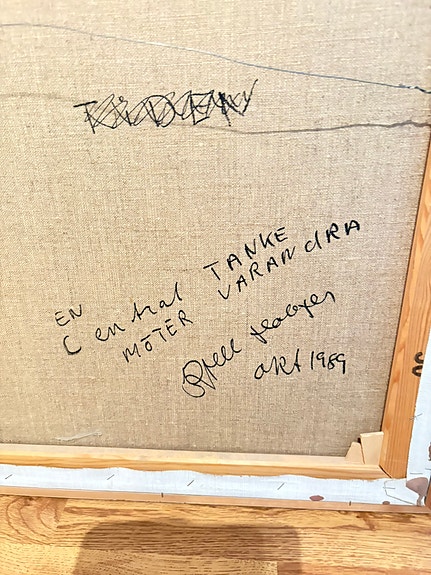 TiDEN
EN
Central TANKE
MÖTER VARANdRA
okt 1989